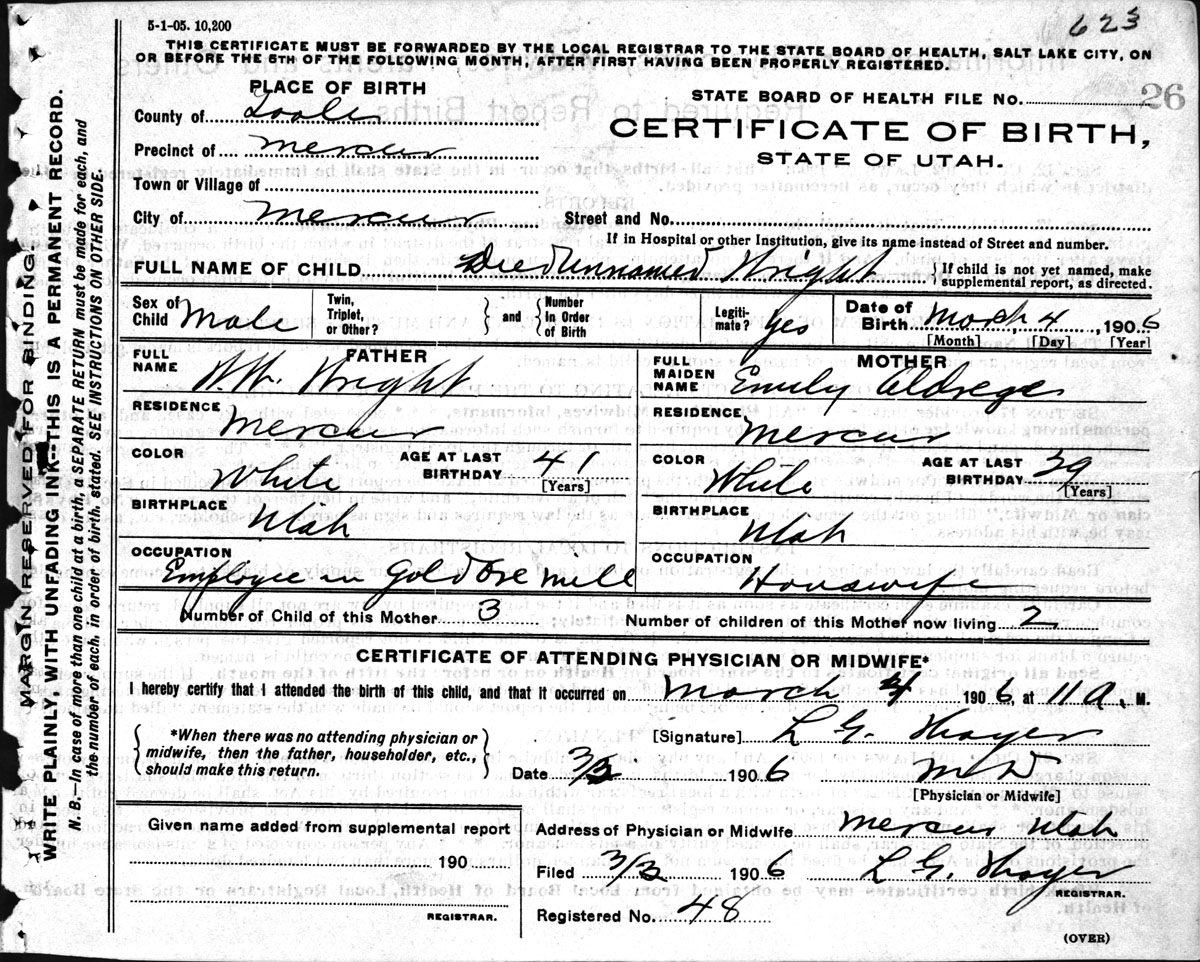 5-1-05. 10,200
623
THIS CERTIFICATE MUST BE FORWARDED BY THE LOCAL REGISTRAR TO THE STATE BOARD OF HEALTH, SALT LAKE CITY, ON
OR BEFORE THE 5TH OF THE FOLLOWING MONTH, AFTER FIRST HAVING BEEN PROPERLY REGISTERED.
PLACE OF BIRTH
STATE BOARD OF HEALTH FILE NO. 26
County of Tooele
CERTIFICATE OF BIRTH,
Precinct of Mercur
STATE OF UTAH.
Town or Village of
City of Mercur Street and No.
If in Hospital or other Institution, give its name instead of Street and number.
FULL NAME OF CHILD Died Unnamed Wright { If child is not yet named, make
supplemental report, as directed.
Sex of Child Male Twin, Triplet, or Other? } and { Number In Order of Birth Legiti-mate? Yes Date of Birth March, 4, 1906
[Month] [Day] [Year]
FULL NAME FATHER W. W. Wright FULL MAIDEN NAME MOTHER Emily Aldrege
RESIDENCE Mercur RESIDENCE Mercur
COLOR White AGE AT LAST BIRTHDAY 41 [Years] COLOR White AGE AT LAST BIRTHDAY 39 [Years]
BIRTHPLACE Utah BIRTHPLACE Utah
OCCUPATION Employee in Gold Ore Mill OCCUPATION Housewife
Number of Child of this Mother 3 Number of children of this Mother now living 2
CERTIFICATE OF ATTENDING PHYSICIAN OR MIDWIFE*
I hereby certify that I attended the birth of this child, and that it occurred on March 4 1906, at 11 a, M.
*When there was no attending physician or
midwife, then the father, householder, etc.,
should make this return.
[Signature] L G. Thayer
Date 1906 M D
[Physician or Midwife]
Given name added from supplemental report
190
REGISTRAR.
Address of Physician or Midwife Mercur Utah
Filed 1906 L G. Thayer
REGISTRAR.
Registered No. 48
(OVER)
MARGIN RESERVED FOR BINDING
WRITE PLAINLY WITH UNFADING INK—THIS IS A PERMANENT RECORD.
N. B. In case of more than one child at a birth, a SEPARATE RETURN must be made for each, and
the number of each, in order of birth, stated. SEE INSTRUCTIONS ON OTHER SIDE.